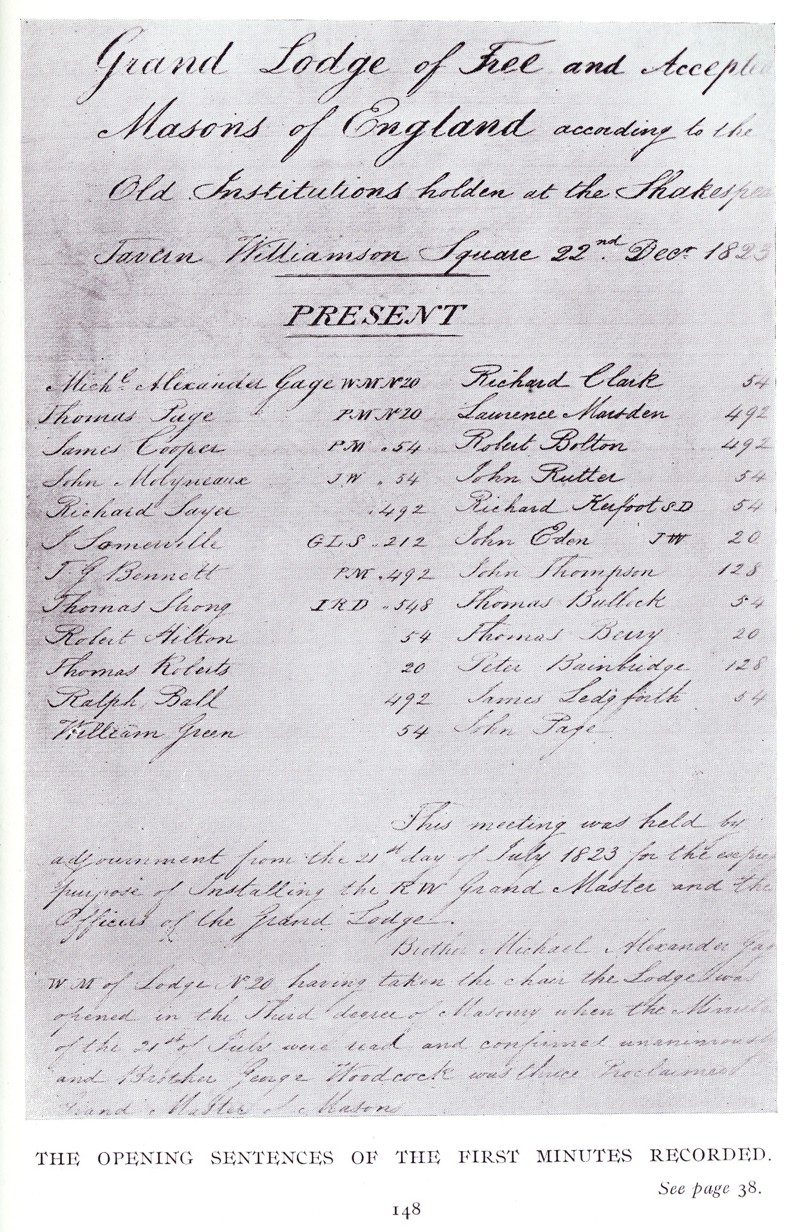 Grand Lodge of Free and Accepted
Masons of England according to the
Old Institutions holden at the Shakespear
Tavern Williamson Square 22nd. Decr. 1823
PRESENT
Michl. Alexander Gage WM No 20 Richard Clark 54
Thomas Page PM No 20 Laurence Marsden 492
James Cooper PM . 54 Robert Bolton 492
John Molyneaux JW . 54 John Rutter 54
Richard Sayer . 492 Richard Kerfoot SD 54
J Somerville GLS . 212 John Eden JW 20
T G Bennett PM . 492 John Thompson 128
Thomas Strong IRD . 548 Thomas Bullock 54
Robert Hilton 54 Thomas Berry 20
Thomas Roberts 20 Peter Bainbridge 128
Ralph Ball 492 James Ledgforth 54
William Green 54 John Page
This meeting was held by
adjournment from the 21st day of July 1823 for the
purpose of Installing the RW Grand Master and the
Officers of the Grand Lodge.
Brother Michael Alexander Gage
WM of Lodge No 20 having taken the chair the Lodge was
opened in the Third degree of Masonry when the Minutes
of the 21st of July were read and confirmed unanimously
and Brother George Woodcock was thrice Proclaimed
Grand Master of Masons
THE OPENING SENTENCES OF THE FIRST MINUTES RECORDED.
See page 38.
148